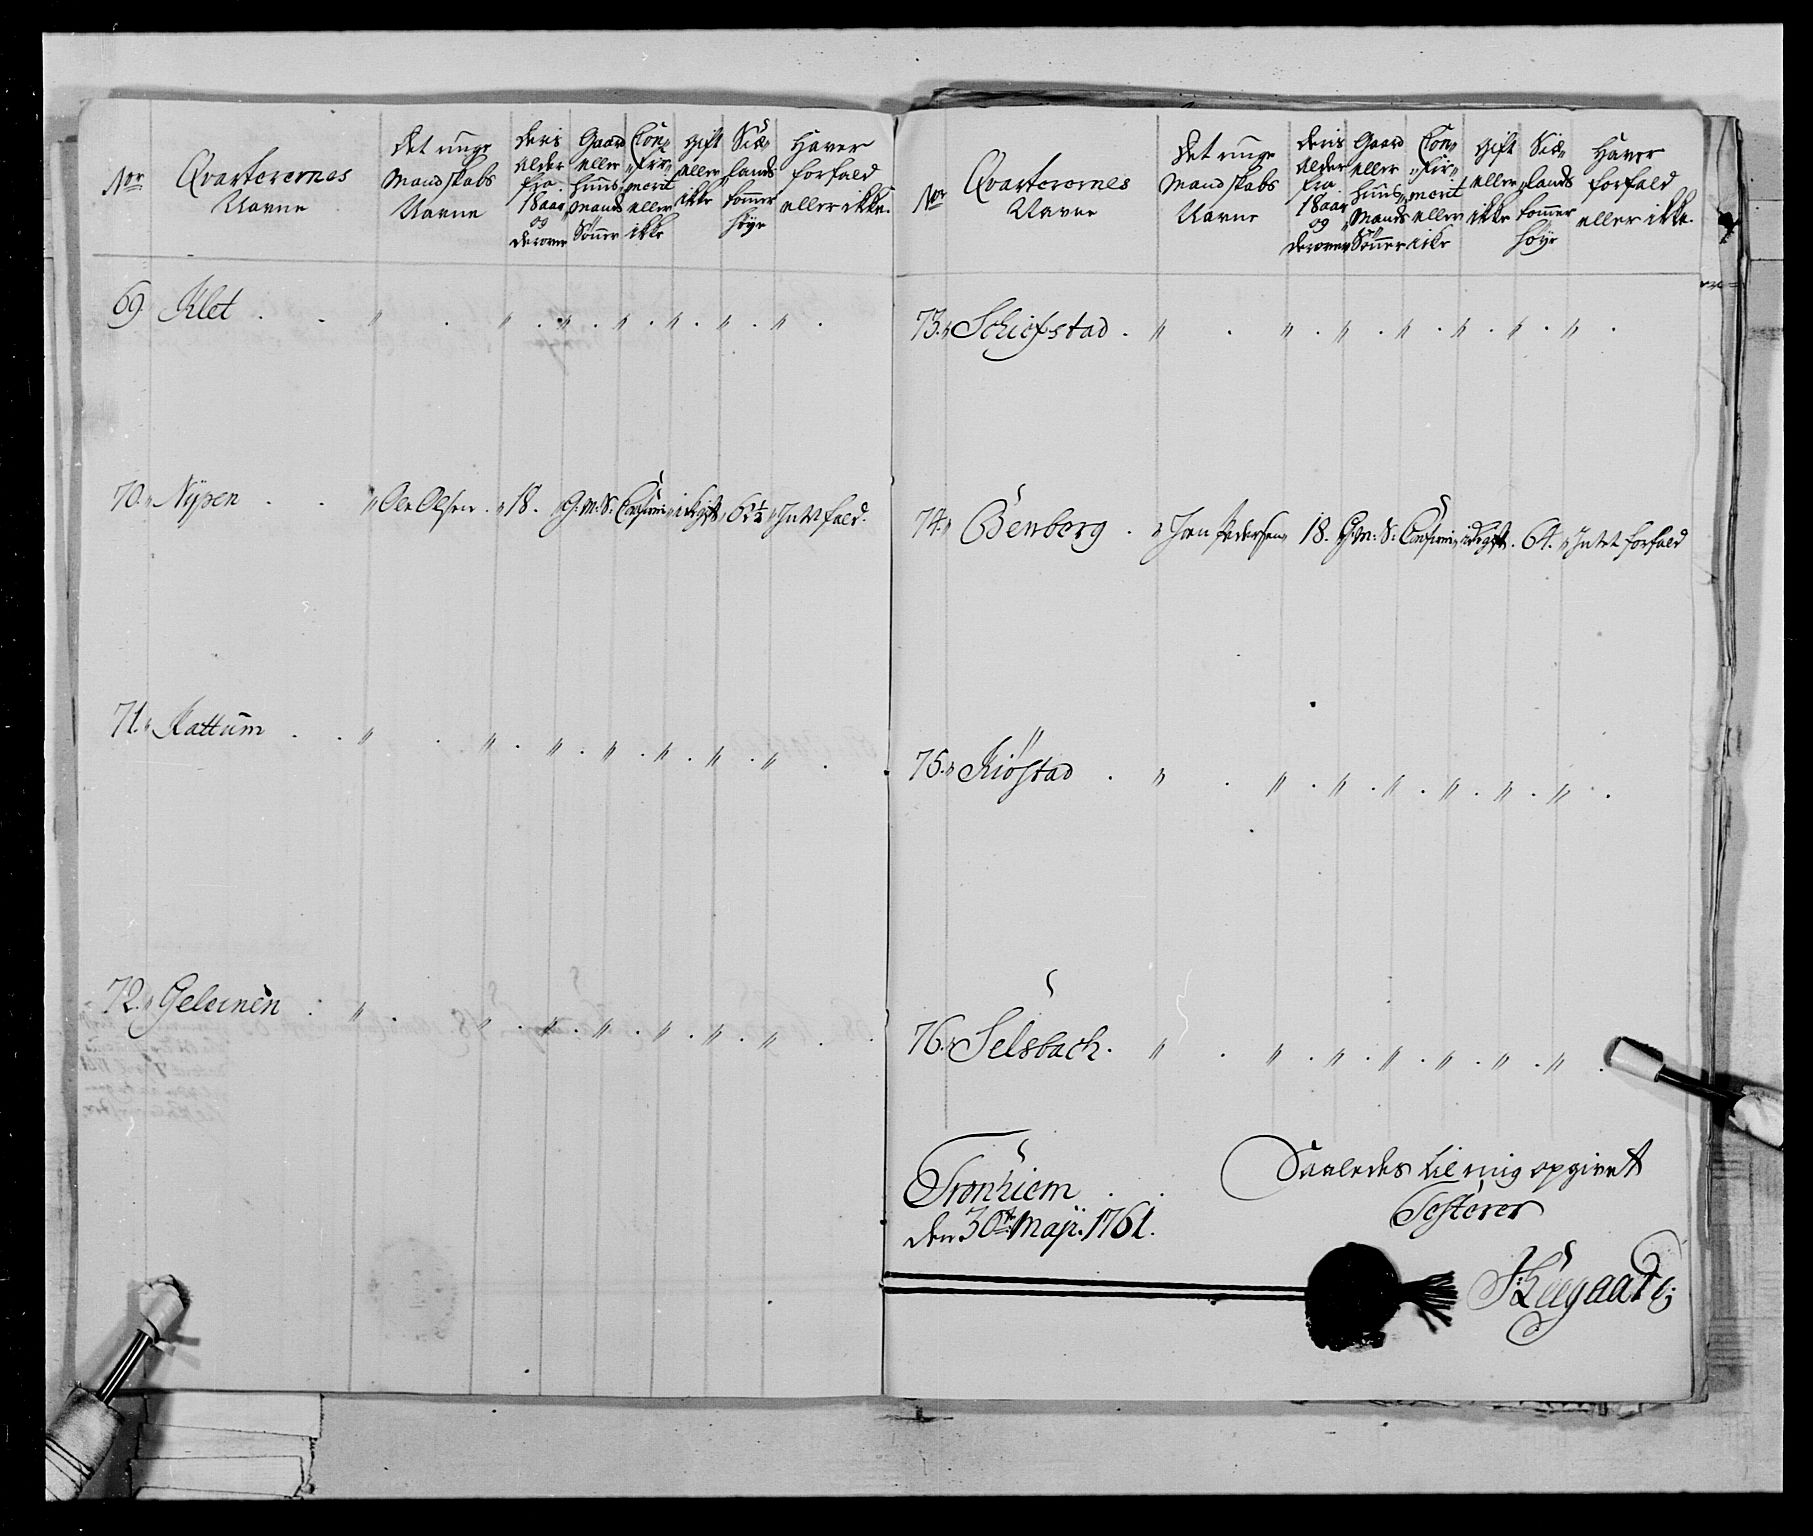 No:
Qvarterernes
Navne
Det unge
Mandskabs
Navne
Deris
alder
fra
18 aar
og
derover
Gaard
eller
Huus
Mands
Sönner
Con„
„fir„
merit
eller
ikke
gift
eller
ikke
Siæ„
„lands
tommer
höye
Haver
forfald
eller ikke.
69. Klet . . „ . „ . „ . „ . „ . „ . „ .
70. „ Nÿpen . . „ Ole Olsen . „ 18. „ G: M: S: Confirm: ikegift „ 62½ „ Intet fald.
71. „ Kattum . . „ . „ . „ . „ . „ . „ . „ .
72. „ : „ . „ . „ . „ . „ . „ . „ .
No:
Qvarterernes
Navne
Det unge
Mandskabs
Navne
Deris
alder
fra
18 aar
og
derover
Gaard
eller
Huus„
„Mands
Sönner
Con„
„fir„
merit
eller
ikke
gift
eller
ikke
Siæ„
„lands
tommer
höye
Haver
forfald
eller ikke.
73. „ Schiefstad . „ . „ . „ . „ . „ . „ . „ .
74. „ Öenberg . „ Joen Pedersen „ 18. G: M: S: Confirm: ikegift . 64. „ Intet forfald
75. „ Kiöstad . „ . „ . „ . „ . „ . „ . „ .
76. „ Selsbach . „ . „ . „ . „ . „ . „ . „ .
Tronhiem
den 30te Maji: 1761.
Saaledes til mig opgivet
Testerer